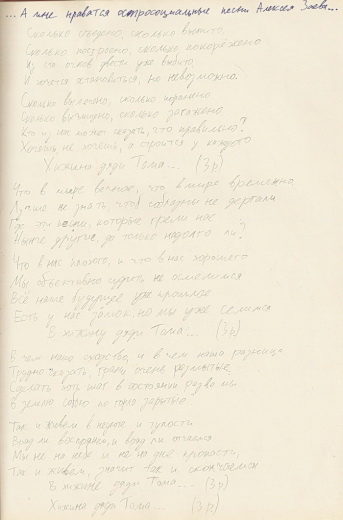 ... А мне нравятся остросоциальные песни Алексея Заева...
Сколько сказано, сколько выпито,
Сколько построено, сколько покорёжено
Из под основ уже выбито,
И хочется остановиться, но невозможно.
Сколько вложено, сколько
Сколько вычищено, сколько загажено
Кто из нас может сказать, что правильно?
Хочешь не хочешь, а строится у каждого
Хижина дяди Тома... (3р)
Что в мире вечное, что в мире временно
Лучше не знать, чтоб не дергали
Где те песни, которые грели нас
Нынче другие, да только надолго ли?
Что в нас плохого, и что в нас хорошего
Мы объективно судить не осмелимся
Всё наше будущее уже прошлое
Есть у нас замок, но мы уже селимся
В хижину дяди Тома... (3р)
В чем наше сходство, и в чем наша разница
Трудно сказать, грани очень размытые
Сделать хоть шаг в состоянии разве мы
В землю по горло зарытые
Так и живем в и тупости
Вряд ли взгорания, и вряд ли
Мы не на небе и не на дне пропасти,
Так и живем, значит так и скончаемся
В хижине дяди Тома... (3р)
Хижина дяди Тома... (3р)